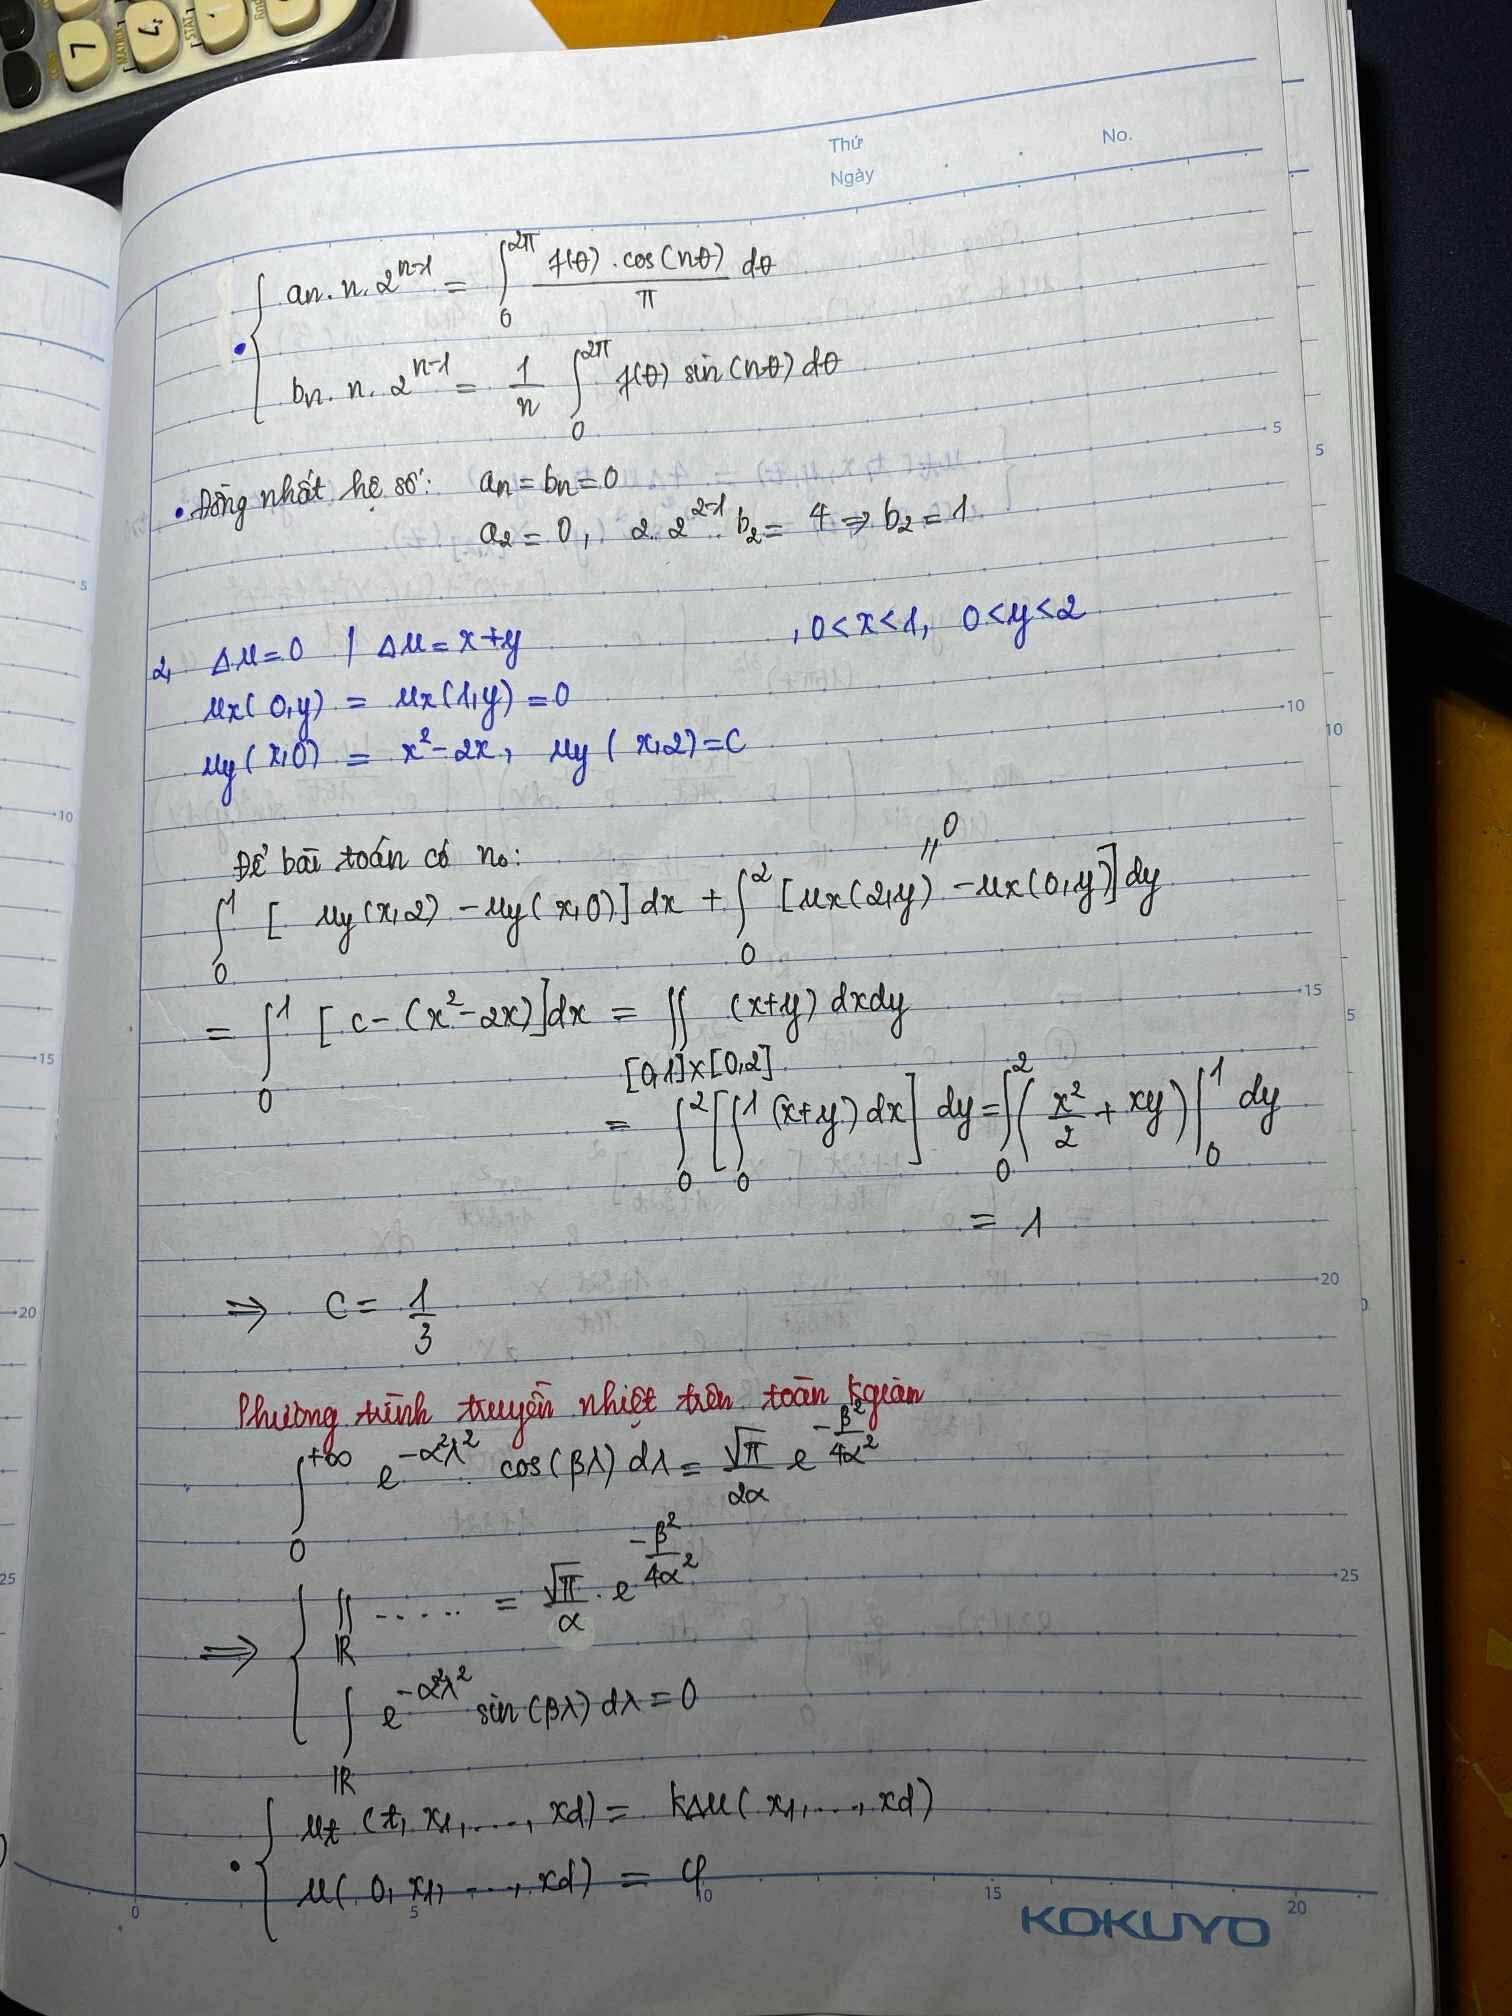 Thứ
Ngày
No.
an. n. 2^{n-1} = ∫_0^{2π} f(θ) . cos(nθ) / π dθ
bn. n. 2^{n-1} = 1/n ∫_0^{2π} f(θ) sin(nθ) dθ
• Đồng nhất hệ số: an = bn = 0
a2 = 0, 2. 2^{2-1}. b2 = 4 => b2 = 1
2, Δu = 0 / Δu = x+y , 0 < x < 1, 0 < y < 2
ux(0,y) = ux(1,y) = 0
uy(x,0) = x² - 2x, uy(x,2) = C
Để bài toán có n0:
∫_0^1 [uy(x,2) - uy(x,0)] dx + ∫_0^2 [ux(2,y) - ux(0,y)] dy = 0
= ∫_0^1 [c - (x² - 2x)] dx = ∬_{[0,1]x[0,2]} (x+y) dxdy
= ∫_0^2 [∫_0^1 (x+y) dx] dy = ∫_0^2 (x²/2 + xy) |_0^1 dy
= 1
=> C = 1/3
Phương trình truyền nhiệt trên toàn kgian
∫_0^{+∞} e^{-α²λ²} cos(βλ) dλ = √π/2α e^{-β²/4α²}
=> ∬_ℝ ..... = √π/α . e^{-β²/4α²}
∫_ℝ e^{-α²λ²} sin(βλ) dλ = 0
• ut (t, x1, ..., xd) = kΔu(x1, ..., xd)
u(0, x1, ..., xd) = φ
5
10
15
20
25
5
10
5
5
10
15
20
25
0
5
10
15
20
KOKUYO